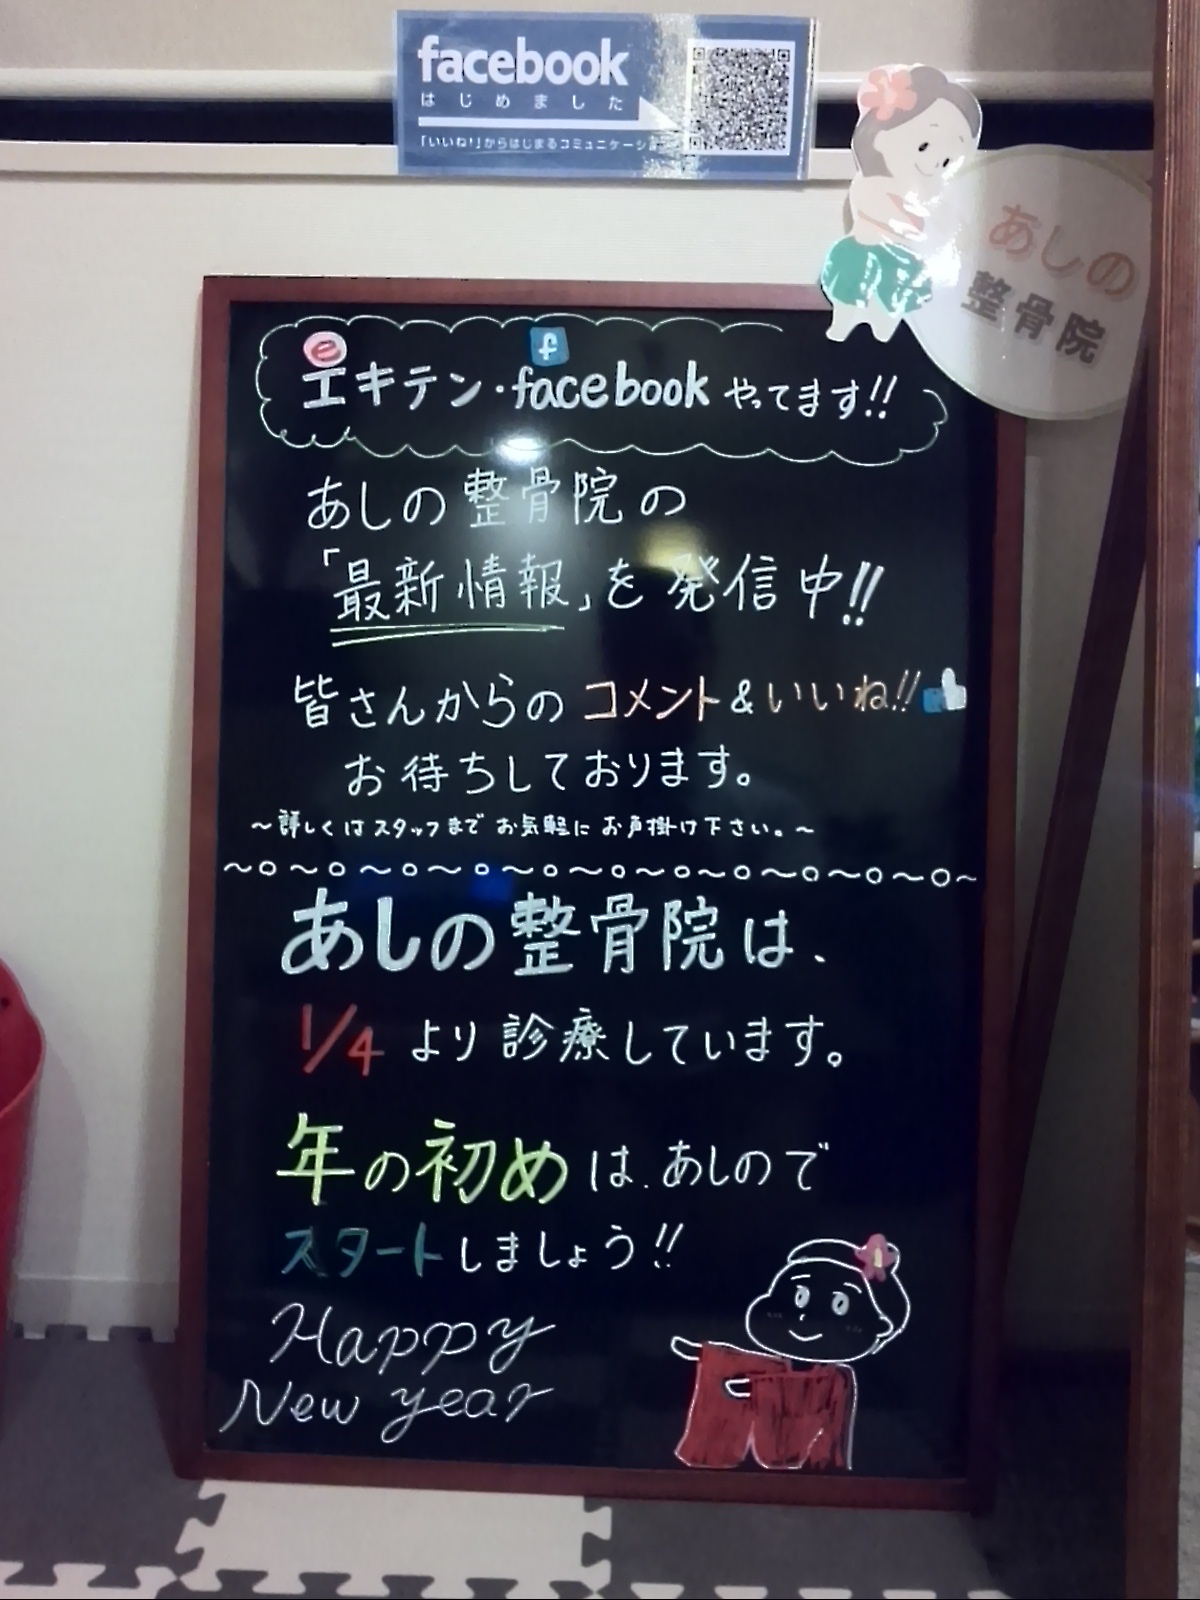 facebook
はじめました
「いいね!」からはじまるコミュニケーション
あしの
整骨院
e
f
エキテン・facebookやってます!!
あしの整骨院の
「最新情報」を発信中!!
皆さんからのコメント&いいね!!
お待ちしております。
～詳しくはスタッフまでお気軽にお声掛け下さい。～
あしの整骨院は、
1/4より診療しています。
年の初めは、あしので
スタートしましょう!!
Happy
New year